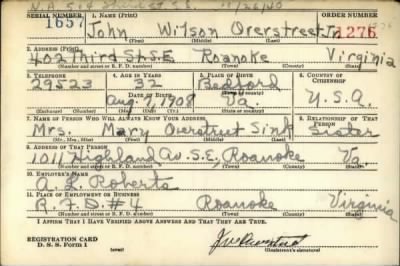 N.A. 504 S.E. 11/26/40
SERIAL NUMBER 1. NAME (Print) ORDER NUMBER
1657 John Wilson Overstreet Jr. 1276
(First) (Middle) (Last)
2. ADDRESS (Print)
402 Third St. S.E. Roanoke Virginia
(Number and street or R. F. D. number) (Town) (County) (State)
3. TELEPHONE 4. AGE IN YEARS 5. PLACE OF BIRTH 6. COUNTRY OF CITIZENSHIP
29523 32 Bedford
DATE OF BIRTH (Town or county)
Aug. 9, 1908 Va. U.S.A.
(Exchange) (Number) (Mo.) (Day) (Yr.) (State or country)
7. NAME OF PERSON WHO WILL ALWAYS KNOW YOUR ADDRESS 8. RELATIONSHIP OF THAT PERSON
Mrs. Mary Overstreet Sink Sister
(Mr., Mrs., Miss) (First) (Middle) (Last)
9. ADDRESS OF THAT PERSON
1011 Highland Av. S.E, Roanoke Va.
(Number and street or R. F. D. number) (Town) (County) (State)
10. EMPLOYER'S NAME
A. L. Roberts
11. PLACE OF EMPLOYMENT OR BUSINESS
R.F.D. #4 Roanoke Virginia
(Number and street or R. F. D. number) (Town) (County) (State)
I AFFIRM THAT I HAVE VERIFIED ABOVE ANSWERS AND THAT THEY ARE TRUE.
REGISTRATION CARD
D. S. S. Form 1 (over) (Registrant's signature)